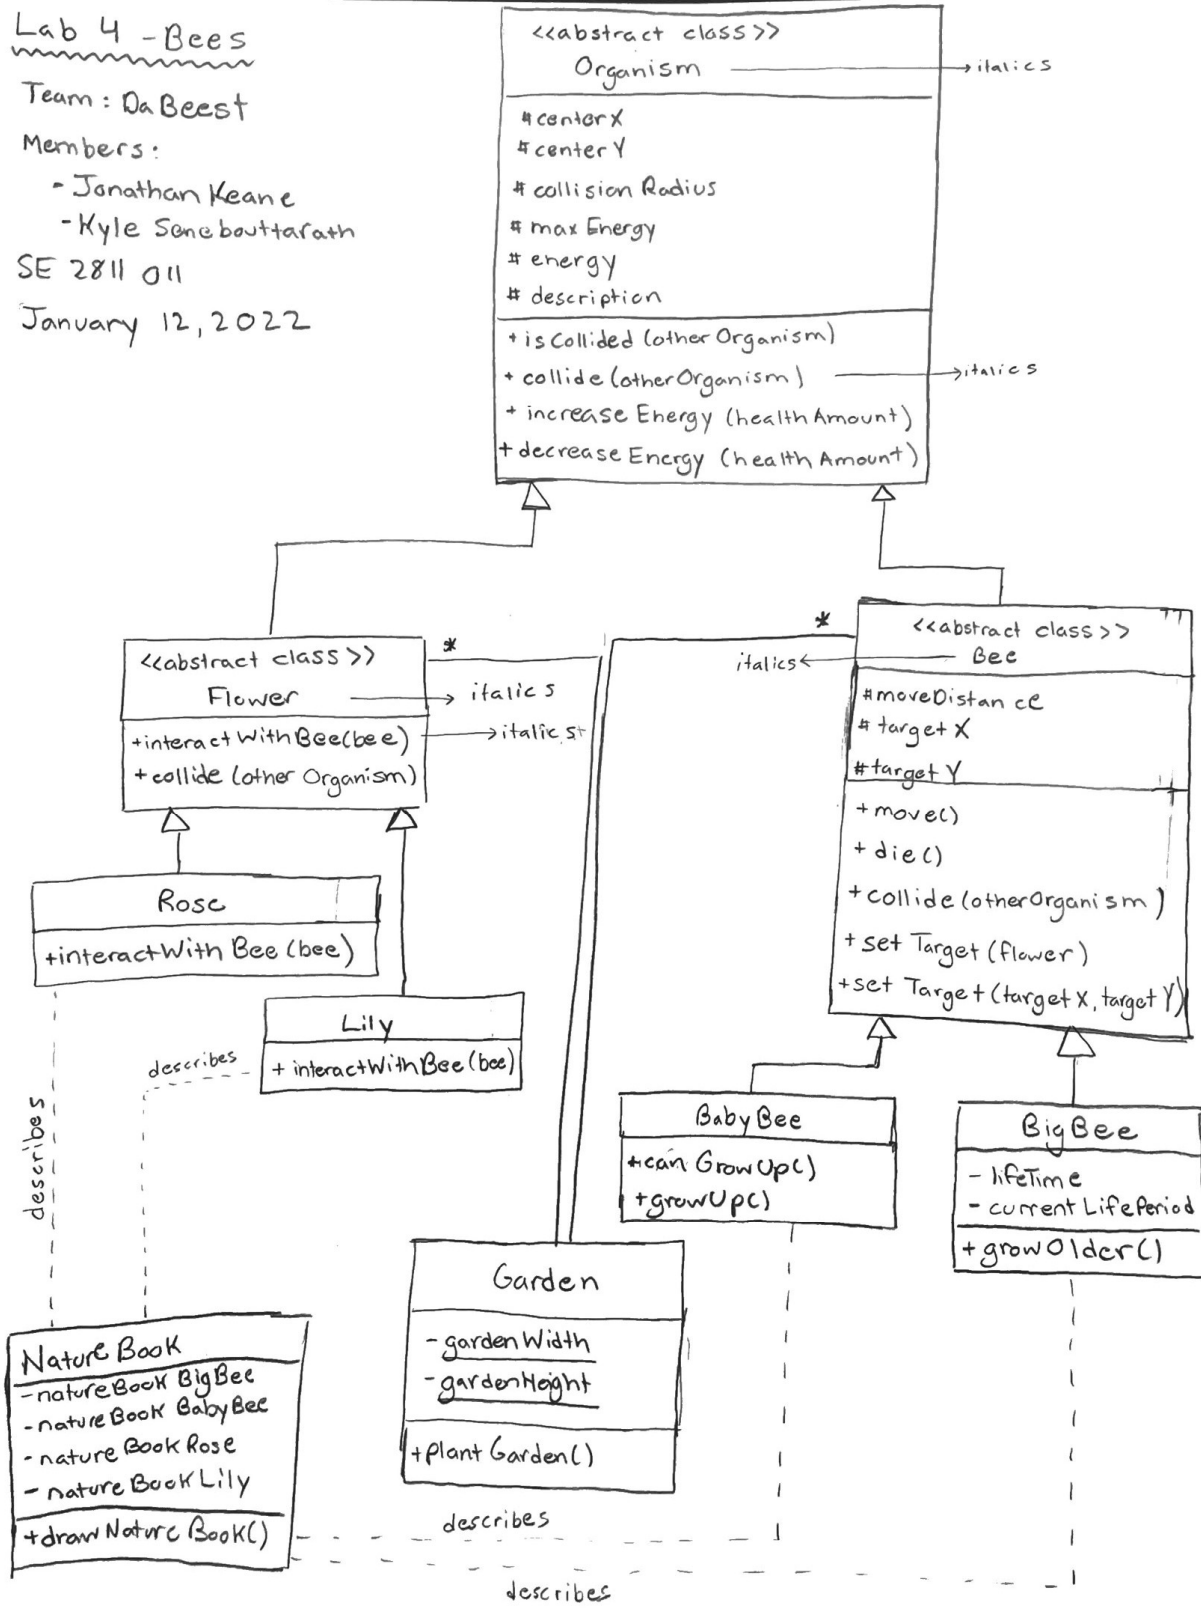 Lab 4 - Bees
Team: DaBeest
Members:
- Jonathan Keane
- Kyle Senebouttarath
SE 2811 011
January 12, 2022
<<abstract class>>
Organism
italics
# centerX
# centerY
# collision Radius
# max Energy
# energy
# description
+ isCollided (otherOrganism)
+ collide (otherOrganism)
italics
+ increase Energy (healthAmount)
+ decrease Energy (healthAmount)
<<abstract class>>
Flower
*
italics
+interactWithBee(bee)
italics
+ collide (other Organism)
*
<<abstract class>>
Bee
italics
#moveDistance
# targetX
#targetY
+ move()
+ die()
+ collide (otherOrganism)
+ set Target (flower)
+set Target (targetX, targetY)
Rose
+interactWith Bee (bee)
Lily
+ interactWithBee (bee)
describes
describes
BabyBee
+can GrowUp()
+growUp()
BigBee
- lifeTime
- current LifePeriod
+ growOlder()
Garden
- gardenWidth
- gardenHeight
+plant Garden()
Nature Book
-natureBook BigBee
-nature Book BabyBee
-nature Book Rose
- nature Book Lily
+draw Nature Book()
describes
describes